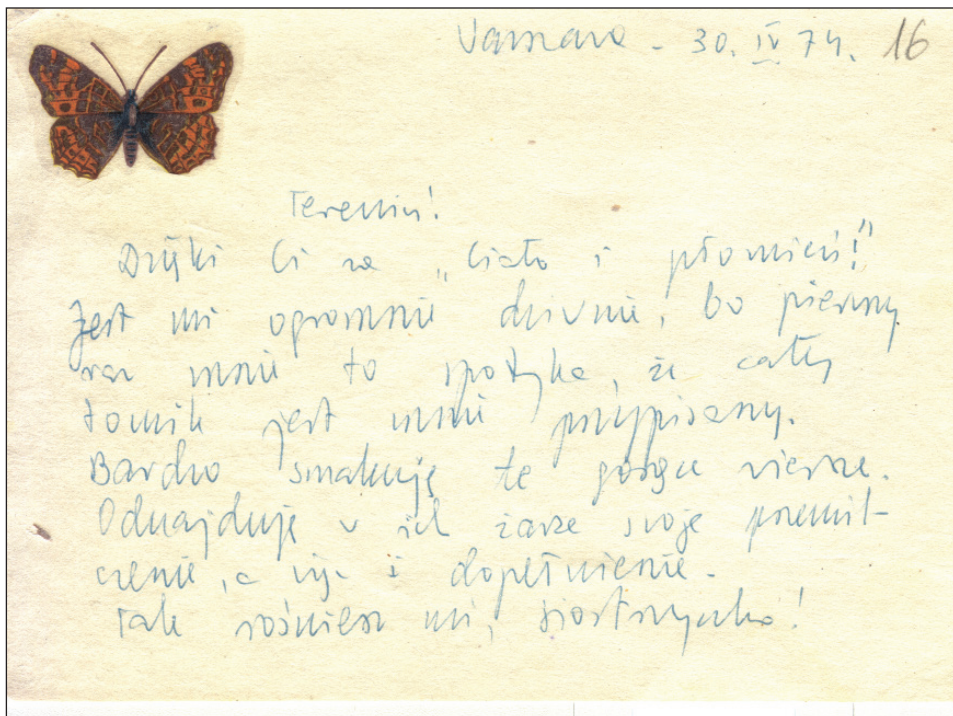 Warszawa - 30. IV 74. 16
Tereniu!
Dzięki Ci za „Ciało i płomień!”
Jest mi ogromnie dziwnie, bo pierwszy
raz mnie to spotyka, że cały
tomik jest mnie przypisany.
Bardzo smakuję te gorące wiersze.
Odnajduję w ich żarze swoje przemil-
czenie, a więc i dopełnienie.
Tak rośniesz mi, siostrzyczko!